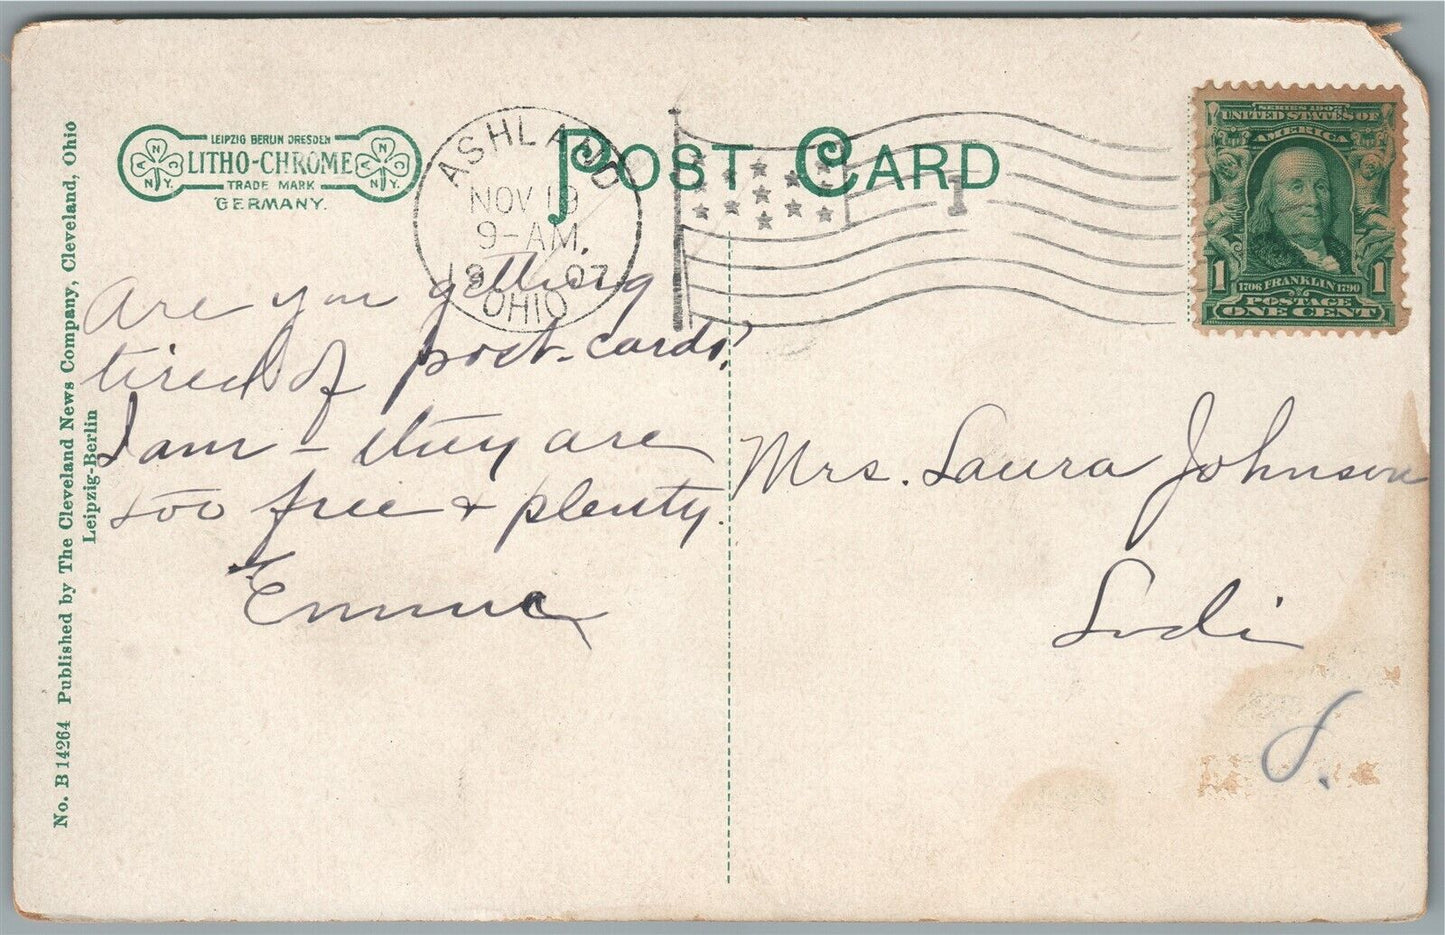 No. B 14264 Published by The Cleveland News Company, Cleveland, Ohio
Leipzig-Berlin
LEIPZIG BERLIN DRESDEN
LITHO-CHROME
TRADE MARK
GERMANY.
ANCNY.
ANCNY.
POST CARD
ASHLAND
NOV 19
9-AM.
1907
OHIO
1
SERIES 1902
UNITED STATES OF
AMERICA
1 1
1706 FRANKLIN 1790
POSTAGE
ONE CENT
Are you getting
tired of post-cards?
I am - they are
too free & plenty.
Emma
Mrs. Laura Johnson
Lodi
O.